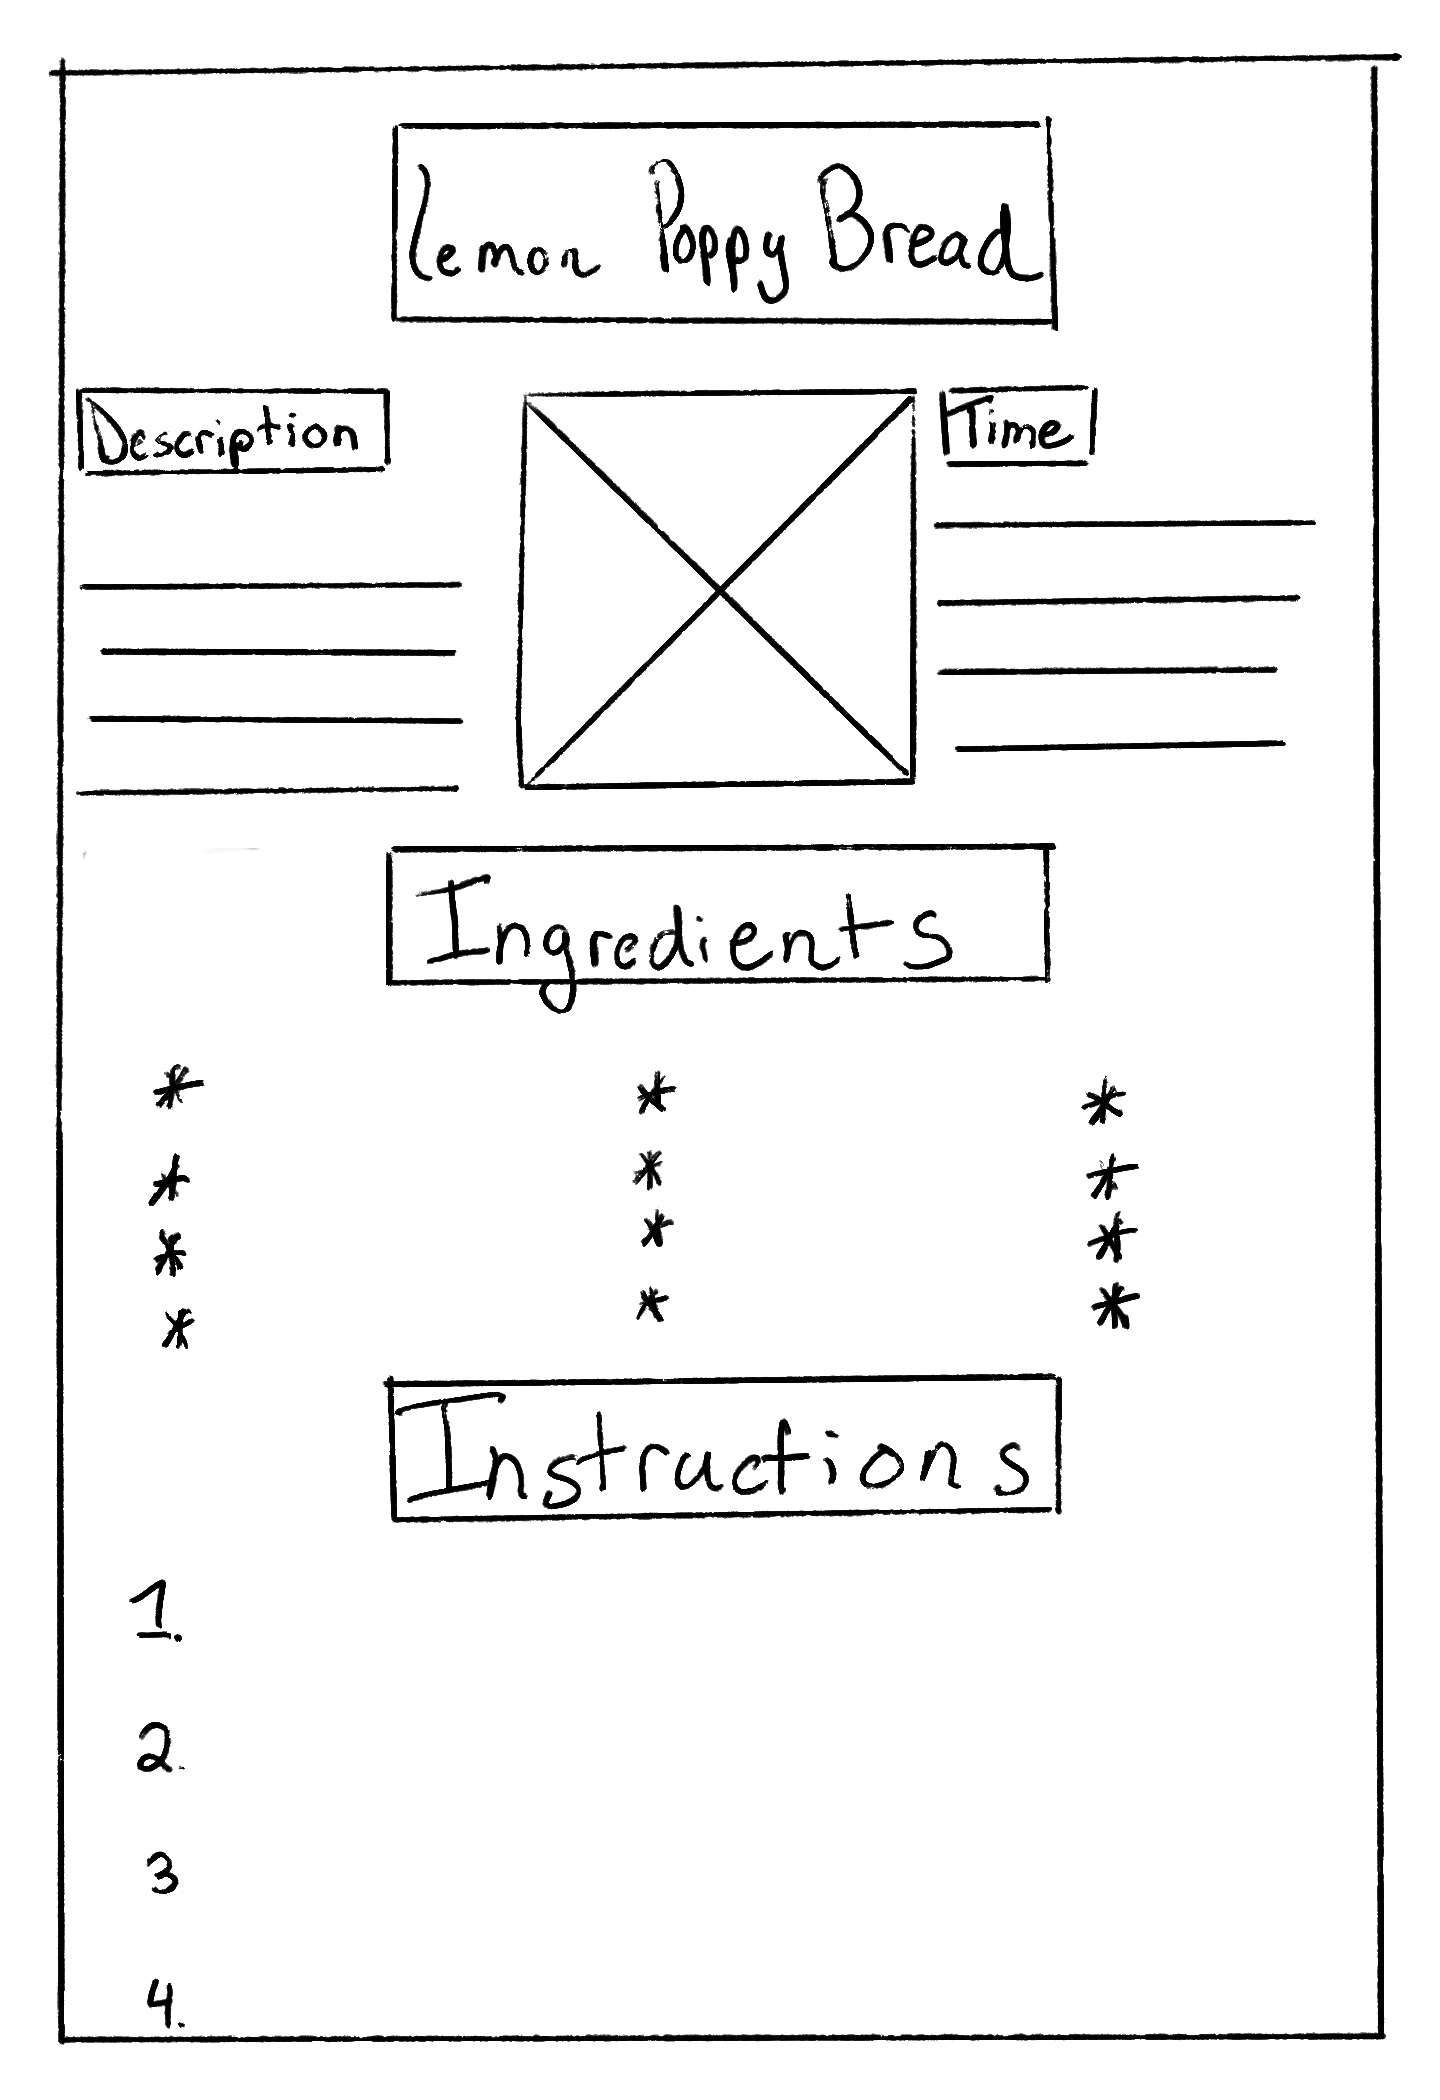 Lemon Poppy Bread
Description
Time
Ingredients
* * *
* * *
* * *
* * *
Instructions
1.
2.
3
4.